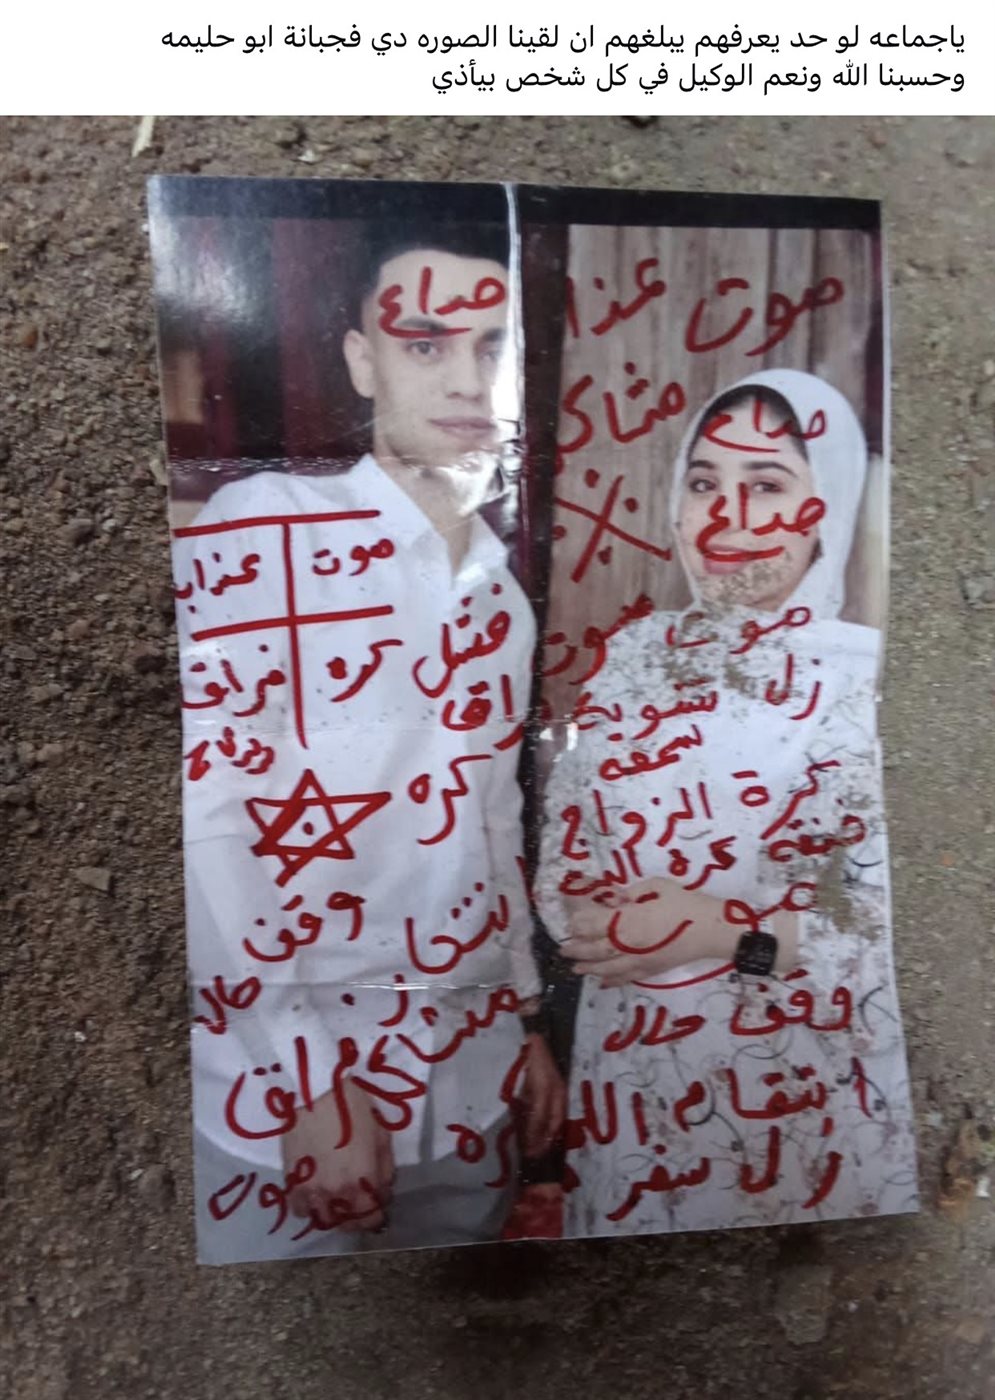 ياجماعه لو حد يعرفهم يبلغهم ان لقينا الصوره دي فجبانة ابو حليمه
وحسبنا الله ونعم الوكيل في كل شخص بيأذي
صداع
موت عذا
مشاكل
صداع
صداع
موت
عذاب
موت
موت
فشل
كره
فراق
زل
تشويه
سمعه
كره
كرة الزواج
كرة البيت
انتقا
وقف
حال
موت
وقف حال
فراق
انتقام
كره
زل سفر
موت